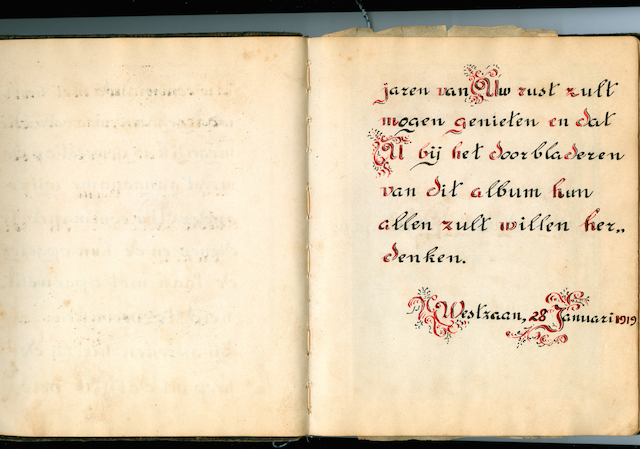 jaren van Uw rust zult
mogen genieten en dat
U bij het doorbladeren
van dit album hun
allen zult willen her„
denken.
Westzaan, 28 Januari 1919